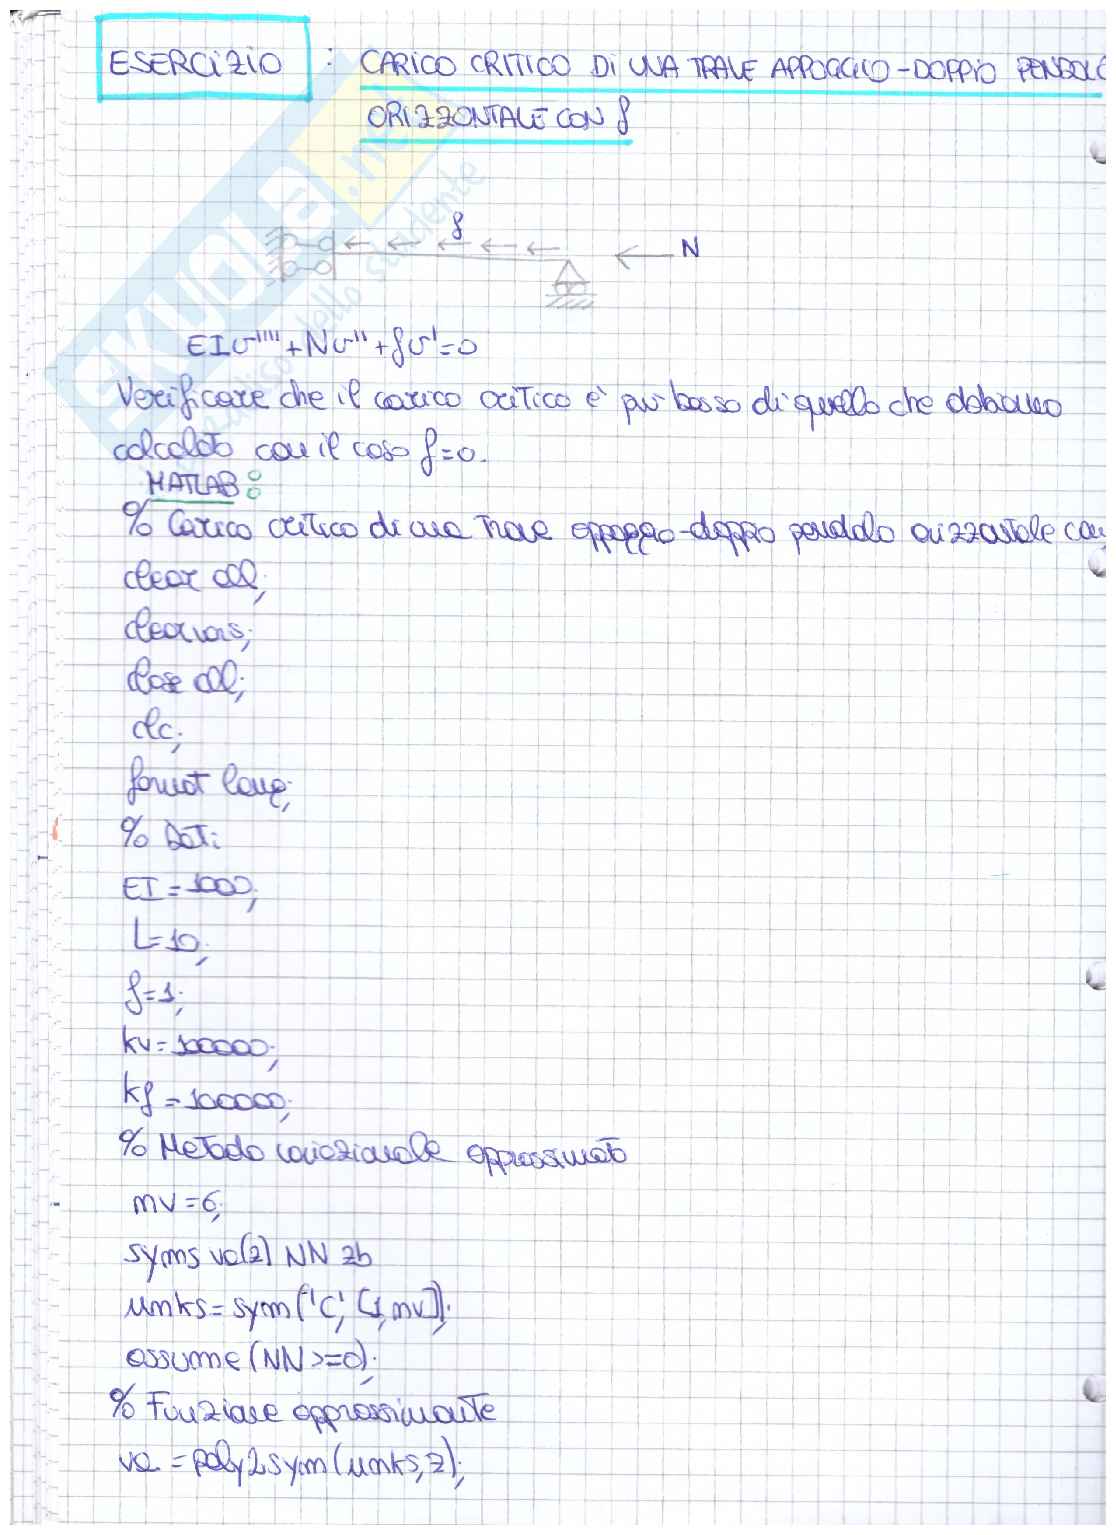 ESERCIZIO : CARICO CRITICO DI UNA TRAVE APPOGGIO-DOPPIO PENDOLO
ORIZZONTALE CON f
f
N
EIv''''+Nv''+fv'=0
Verificare che il carico critico è più basso di quello che abbiamo
calcolato con il caso f=0.
MATLAB:
% Carico critico di una trave appoggio-doppio pendolo orizzontale con
clear all;
clearvars;
close all;
clc;
format long;
% Dati
EI=1000;
L=10;
f=1;
kv=100000;
kf=100000;
% Metodo variazionale approssimato
mv=6;
syms va(z) NN zb
umks=sym('C',[1,mv]);
assume(NN>=0);
% Funzione approssimante
va=poly2sym(umks,z);
SKUOLA.net